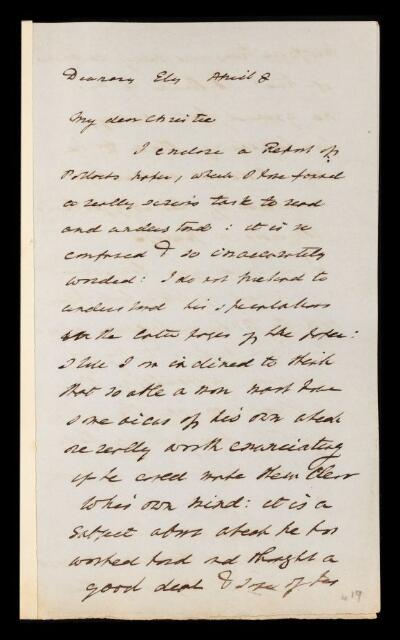 Deanery Ely April 8
My dear Christie
I enclose a Report of
Pollocks paper, which I have found
a really serious task to read
and understand : it is so
confused & so inaccurately
worded : I do not pretend to
understand his speculations
in the later pages of the paper :
I am inclined to think
that so able a man must have
some views of his own which
are really worth enunciating
if he could make them clear
to his own mind : it is a
subject about which he has
worked hard and thought a
good deal & some of his
19